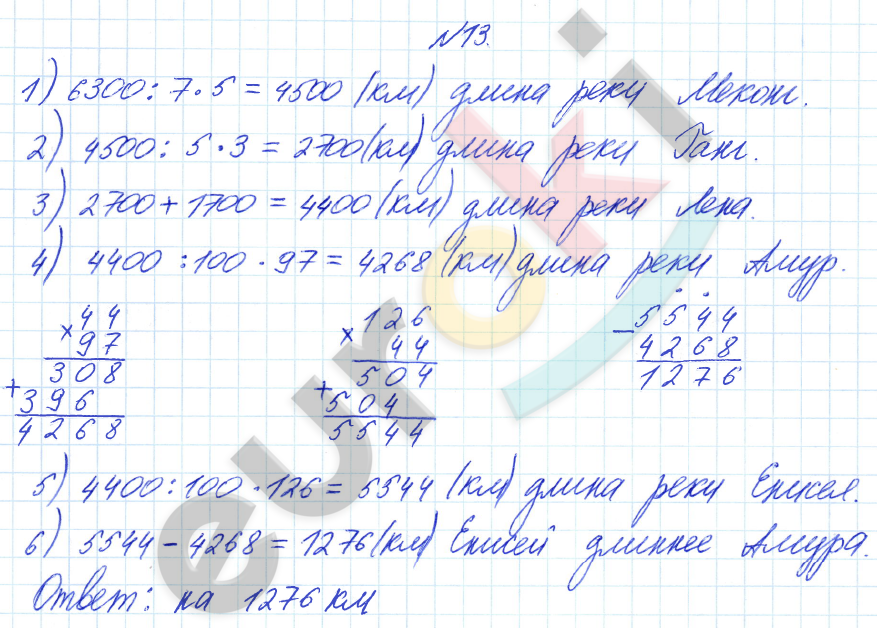 №13.
1) 6300 : 7 · 5 = 4500 (км) длина реки Меконг.
2) 4500 : 5 · 3 = 2700 (км) длина реки Ганг.
3) 2700 + 1700 = 4400 (км) длина реки Лена.
4) 4400 : 100 · 97 = 4268 (км) длина реки Амур.
× 44 × 126 − 5544
97 44 4268
308 504 1276
+ 396 + 504
4268 5544
5) 4400 : 100 · 126 = 5544 (км) длина реки Енисея.
6) 5544 − 4268 = 1276 (км) Енисей длиннее Амура.
Ответ: на 1276 км
euroki